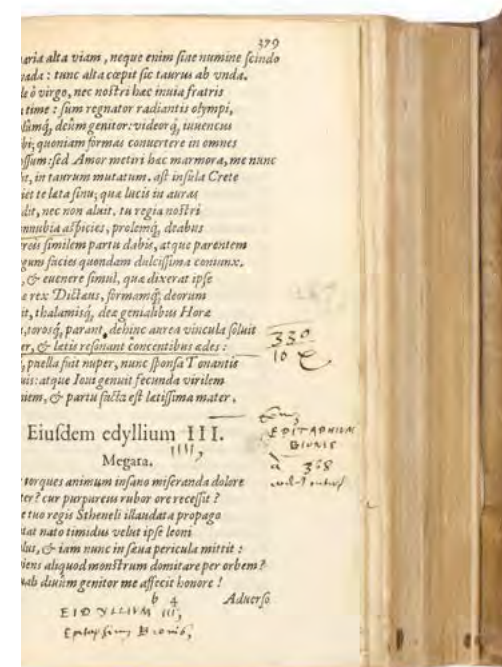 379
aria alta viam, neque enim sine numine scindo
vada: tunc alta cœpit sic taurus ab vnda.
ò virgo, nec nostri hac inuia fratris
time: sum regnator radiantis olympi,
deûm genitor: videorq́, iuuencus
quoniam formas conuertere in omnes
ssum: sed Amor metiri hac marmora, me nunc
it, in taurum mutatum. ast insula Crete
te lata sinu, qua lucis in auras
dit, nec non aluit. tu regia nostri
nnubia aspicies, prolemq́, deabus
similem partu dabis, atque parentem
gum facies quondam dulcissima coniunx.
, & euenere simul, quæ dixerat ipse
rex Dictæus, formamq́; deorum
it, thalamisq́, dea genialibus Horæ
torosq́, parant, dehinc aurea vincula soluit
er, & lætis resonant concentibus ædes:
puella fuit nuper, nunc sponsa Tonantis
uis: atque Ioui genuit fecunda virilem
iem, & partu facta est lætissima mater.
330
10
Eiusdem edyllium III.
IIII,
EPITAPHIUM
BIONIS
à 368
Megara.
torques animum insano miseranda dolore
ter? cur purpureus rubor ore recessit?
e tuo regis Stheneli illaudata propago
tat nato timidus velut ipse leoni
lus, & iam nunc in sæua pericula mittit:
iens aliquod monstrum domitare per orbem?
uab diuûm genitor me affecit honore!
b 4
Aduerso
EIDYLLIVM III,
Bionis,